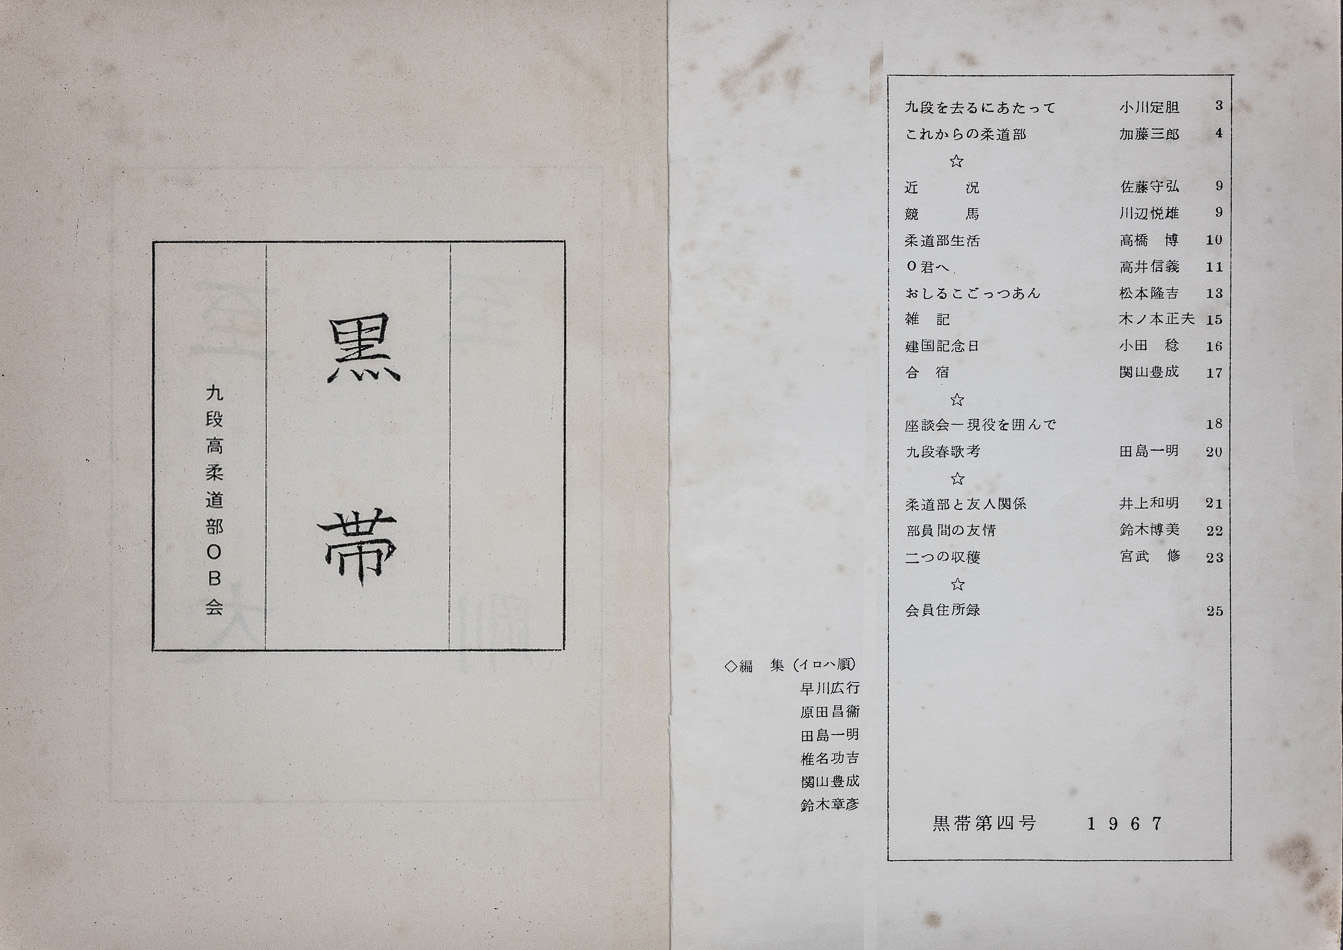 黒帯
九段高柔道部OB会
九段を去るにあたって 小川定胆 3
これからの柔道部 加藤三郎 4
☆
近 況 佐藤守弘 9
競 馬 川辺悦雄 9
柔道部生活 高橋 博 10
O君へ 高井信義 11
おしるこごっつあん 松本隆吉 13
雑 記 木ノ本正夫 15
建国記念日 小田 稔 16
合 宿 関山豊成 17
☆
座談会ー現役を囲んで 18
九段春歌考 田島一明 20
☆
柔道部と友人関係 井上和明 21
部員間の友情 鈴木博美 22
二つの収穫 宮武 修 23
☆
会員住所録 25
黒帯第四号 1967
◇編 集(イロハ順)
早川広行
原田昌衞
田島一明
椎名功吉
関山豊成
鈴木章彦